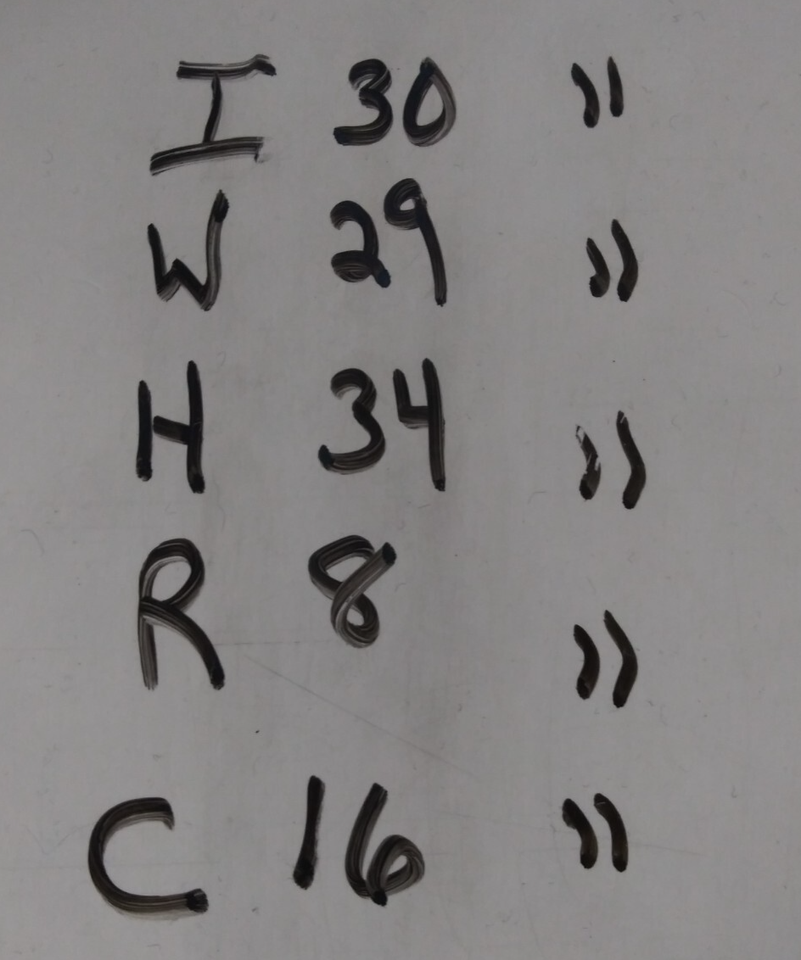 I 30 "
W 29 "
H 34 "
R 8 "
C 16 "